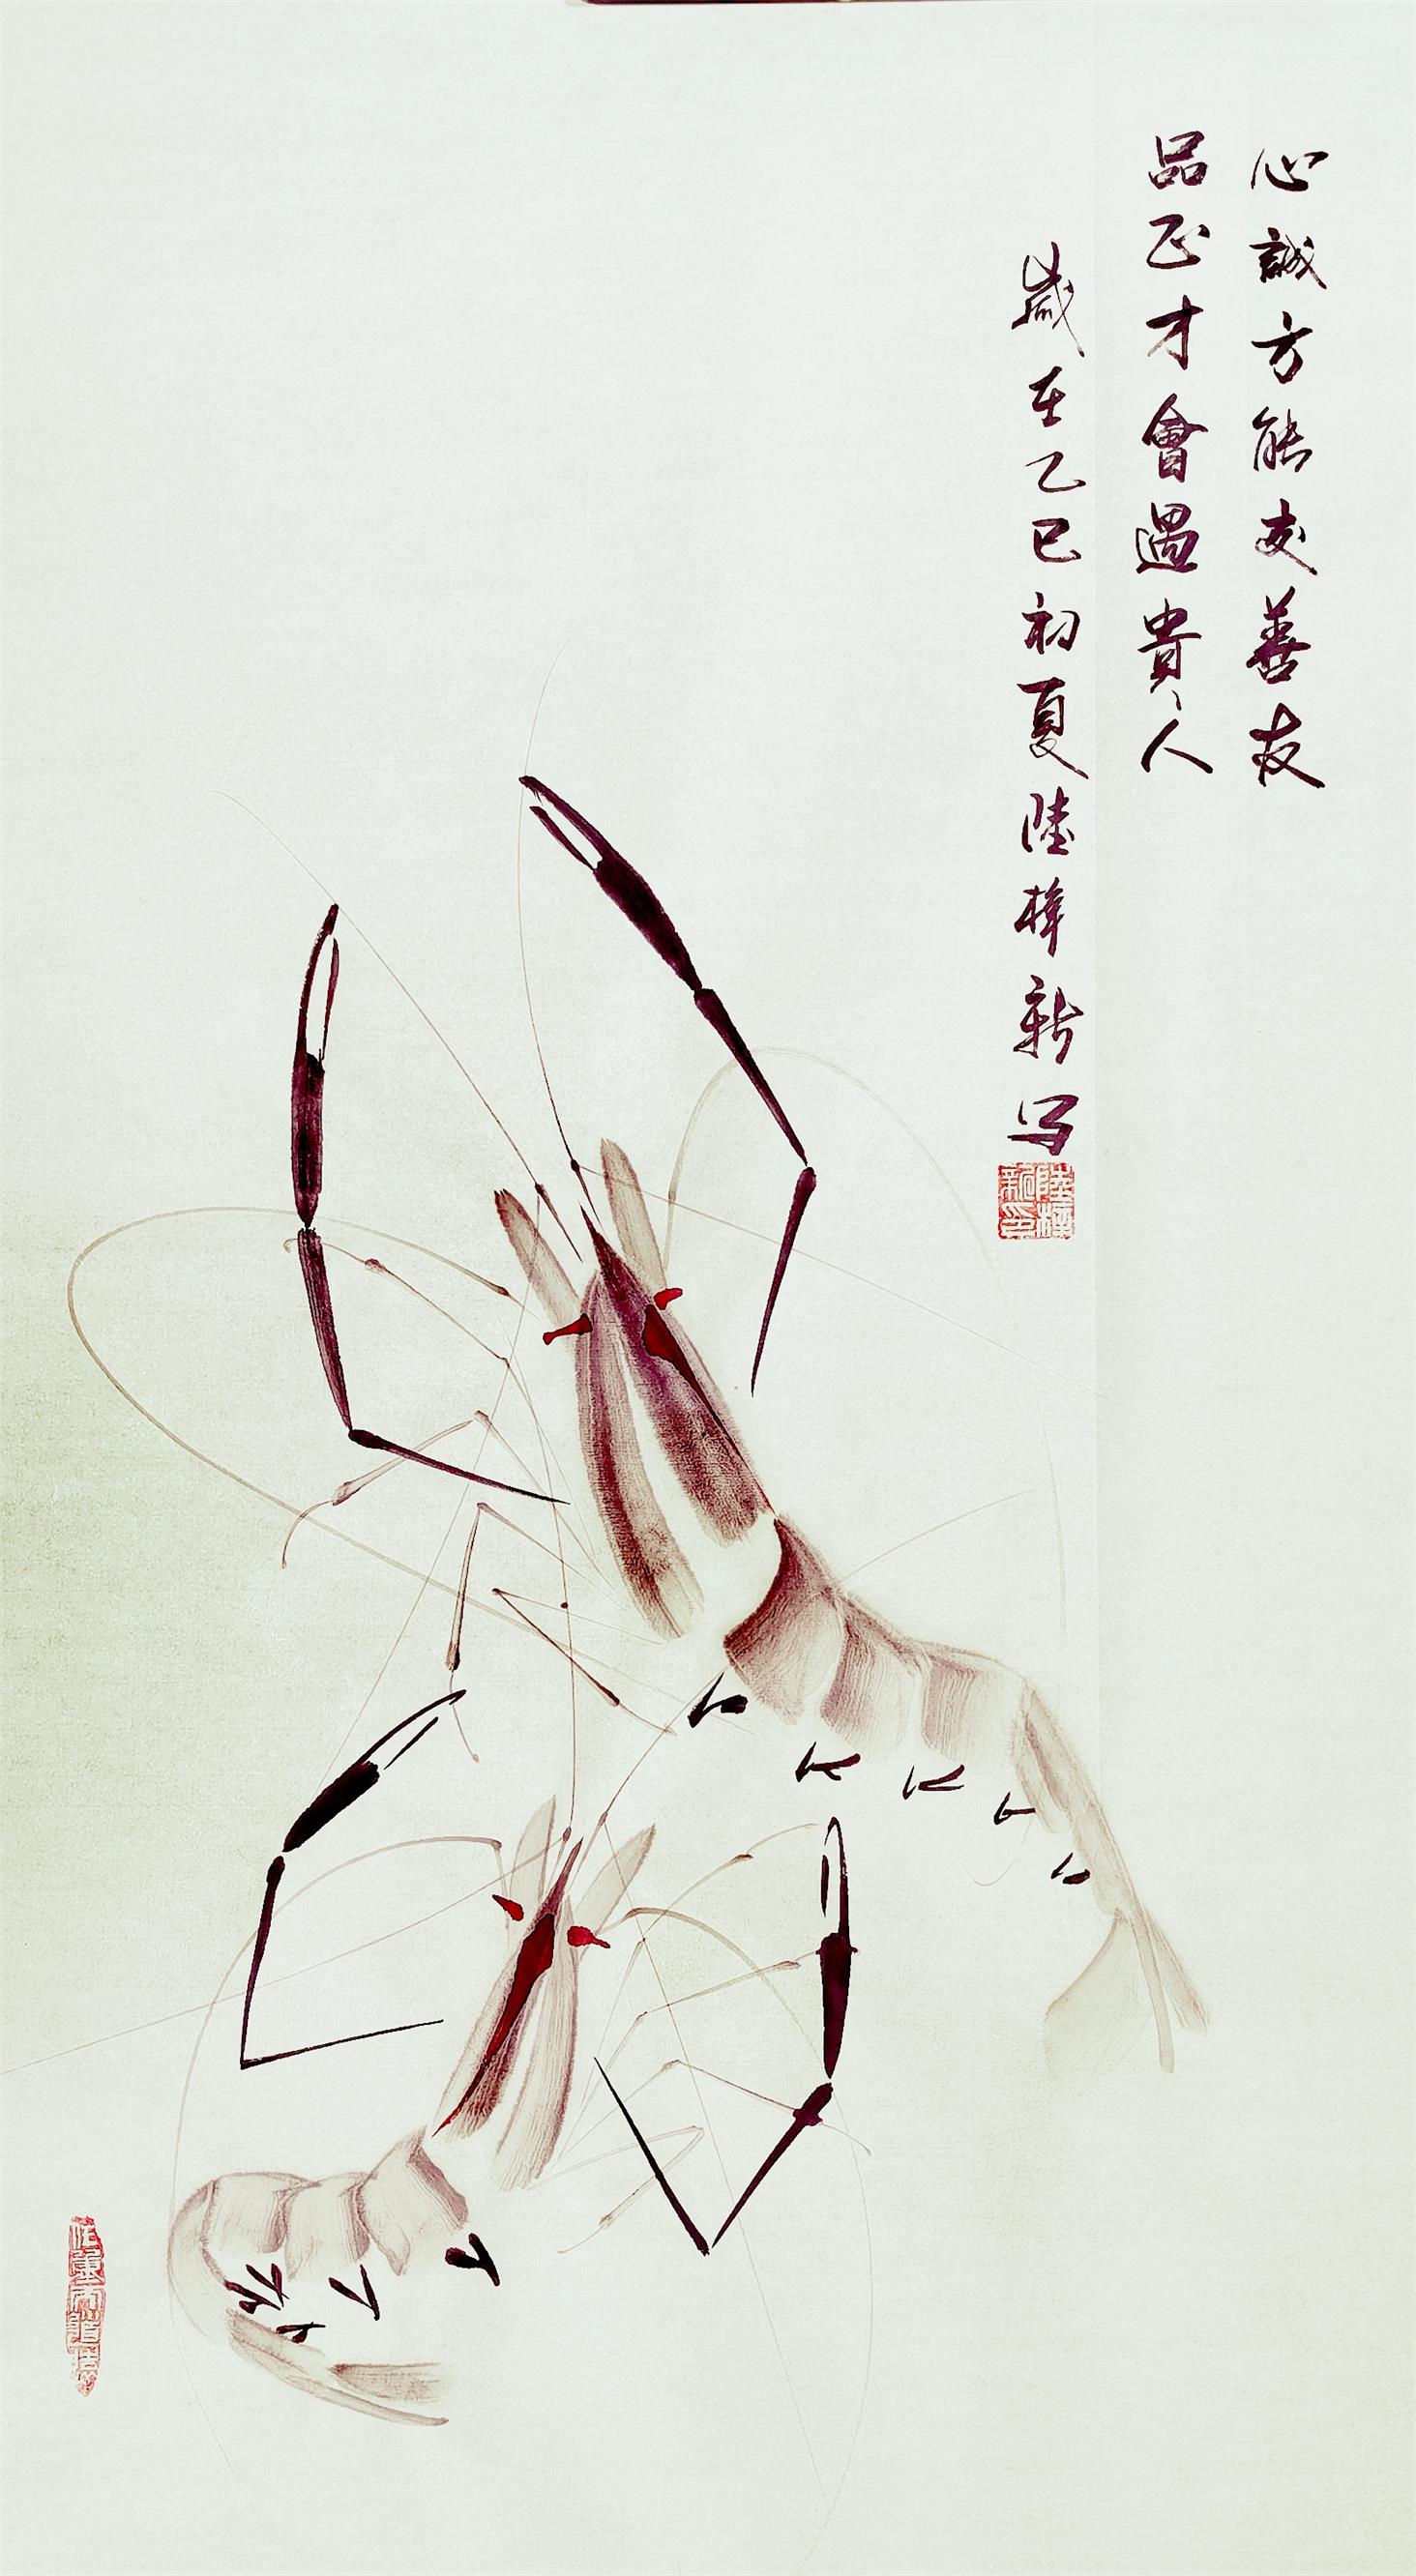 心誠方能交善友
品正才會遇貴人
歲在乙巳初夏陸樟新写
陸樟新印